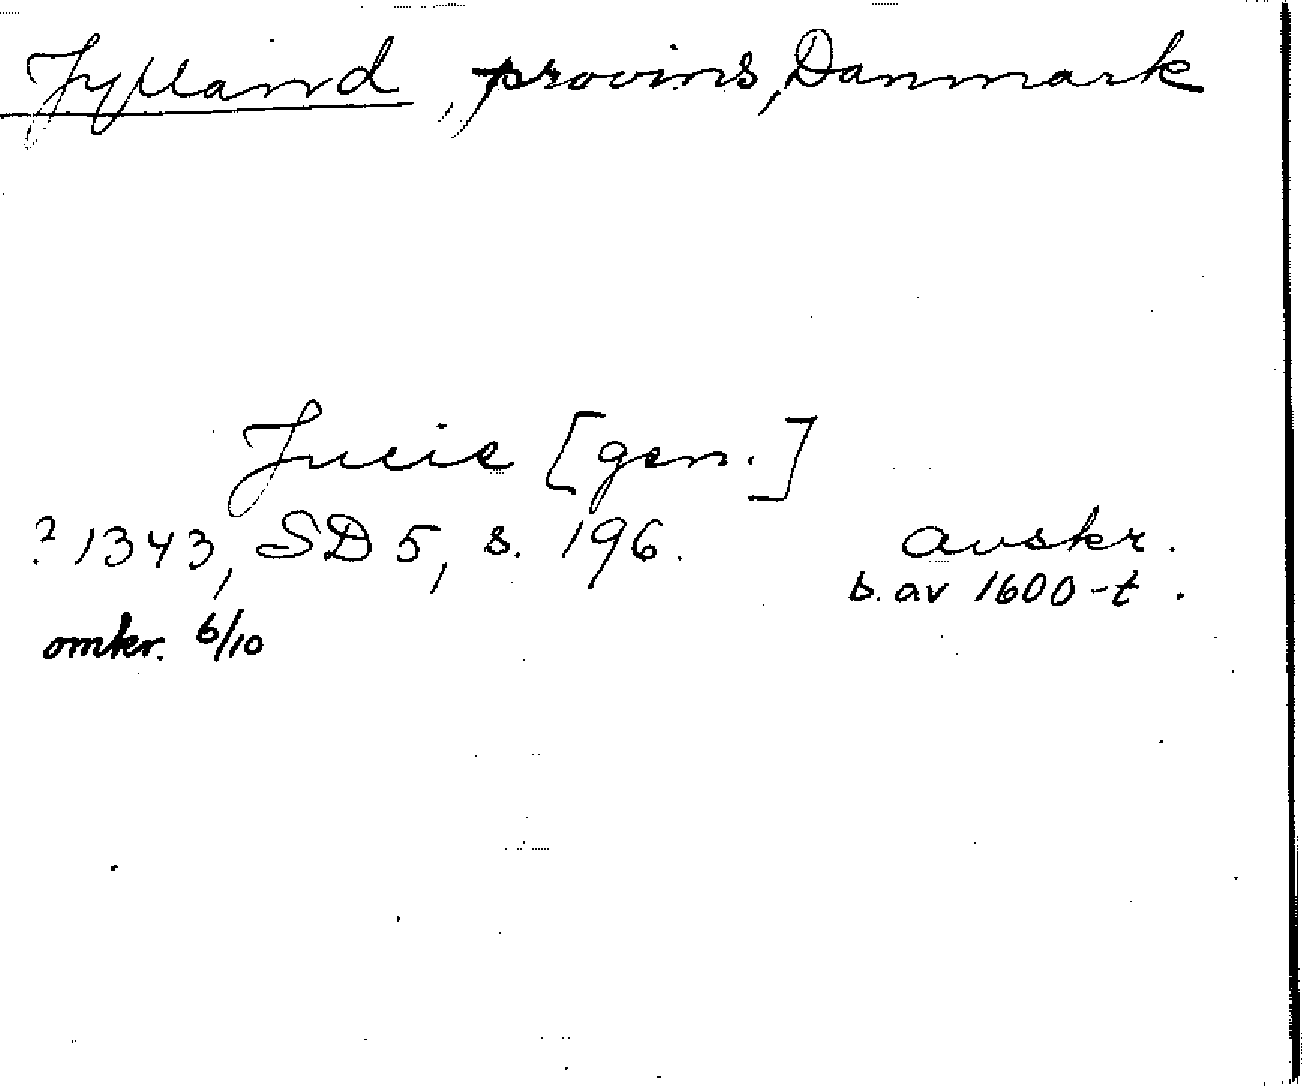 Jylland, provins, Danmark
Jucie [gen.]
? 1343, SD 5, s. 196. avskr.
b. av 1600-t.
omkr. 6/10